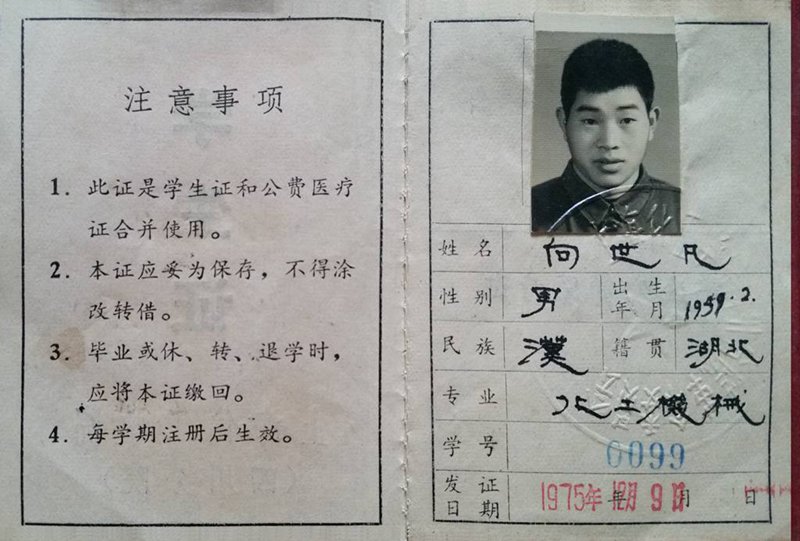 注意事项
1. 此证是学生证和公费医疗
证合并使用。
2. 本证应妥为保存，不得涂
改转借。
3. 毕业或休、转、退学时，
应将本证缴回。
4. 每学期注册后生效。
姓名 向世凡
性别 男 出生年月 1959.2.
民族 漢 籍贯 湖北
专业 化工機械
学号 0099
发证日期 1975年12月9日 年 月 日